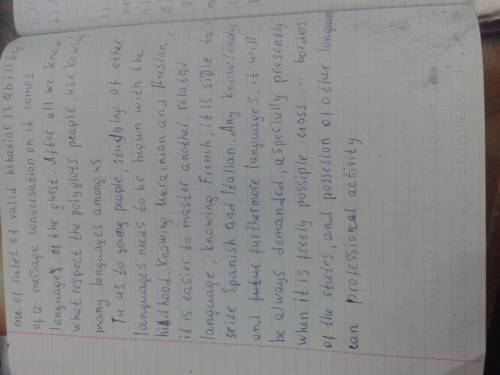 one of rules of valid behavior is ability
of a message conversation on it comes
languages of the guest. After all we know
what respect the polyglots people, use kowing
many languages among us
Tu us to young people, studying of other
languages needs to be begun with the
hildhood. Knowing Ukrainian and Rusian,
it is easier to master another related
language; knowing French, it is siple to
seize Spanish and Italian. Any knowlendge
and furthermore languages, it will
be always demanded, aspecially presently
when it is freely possiple cross borders
of the states, and possesion of other language
can professional activity